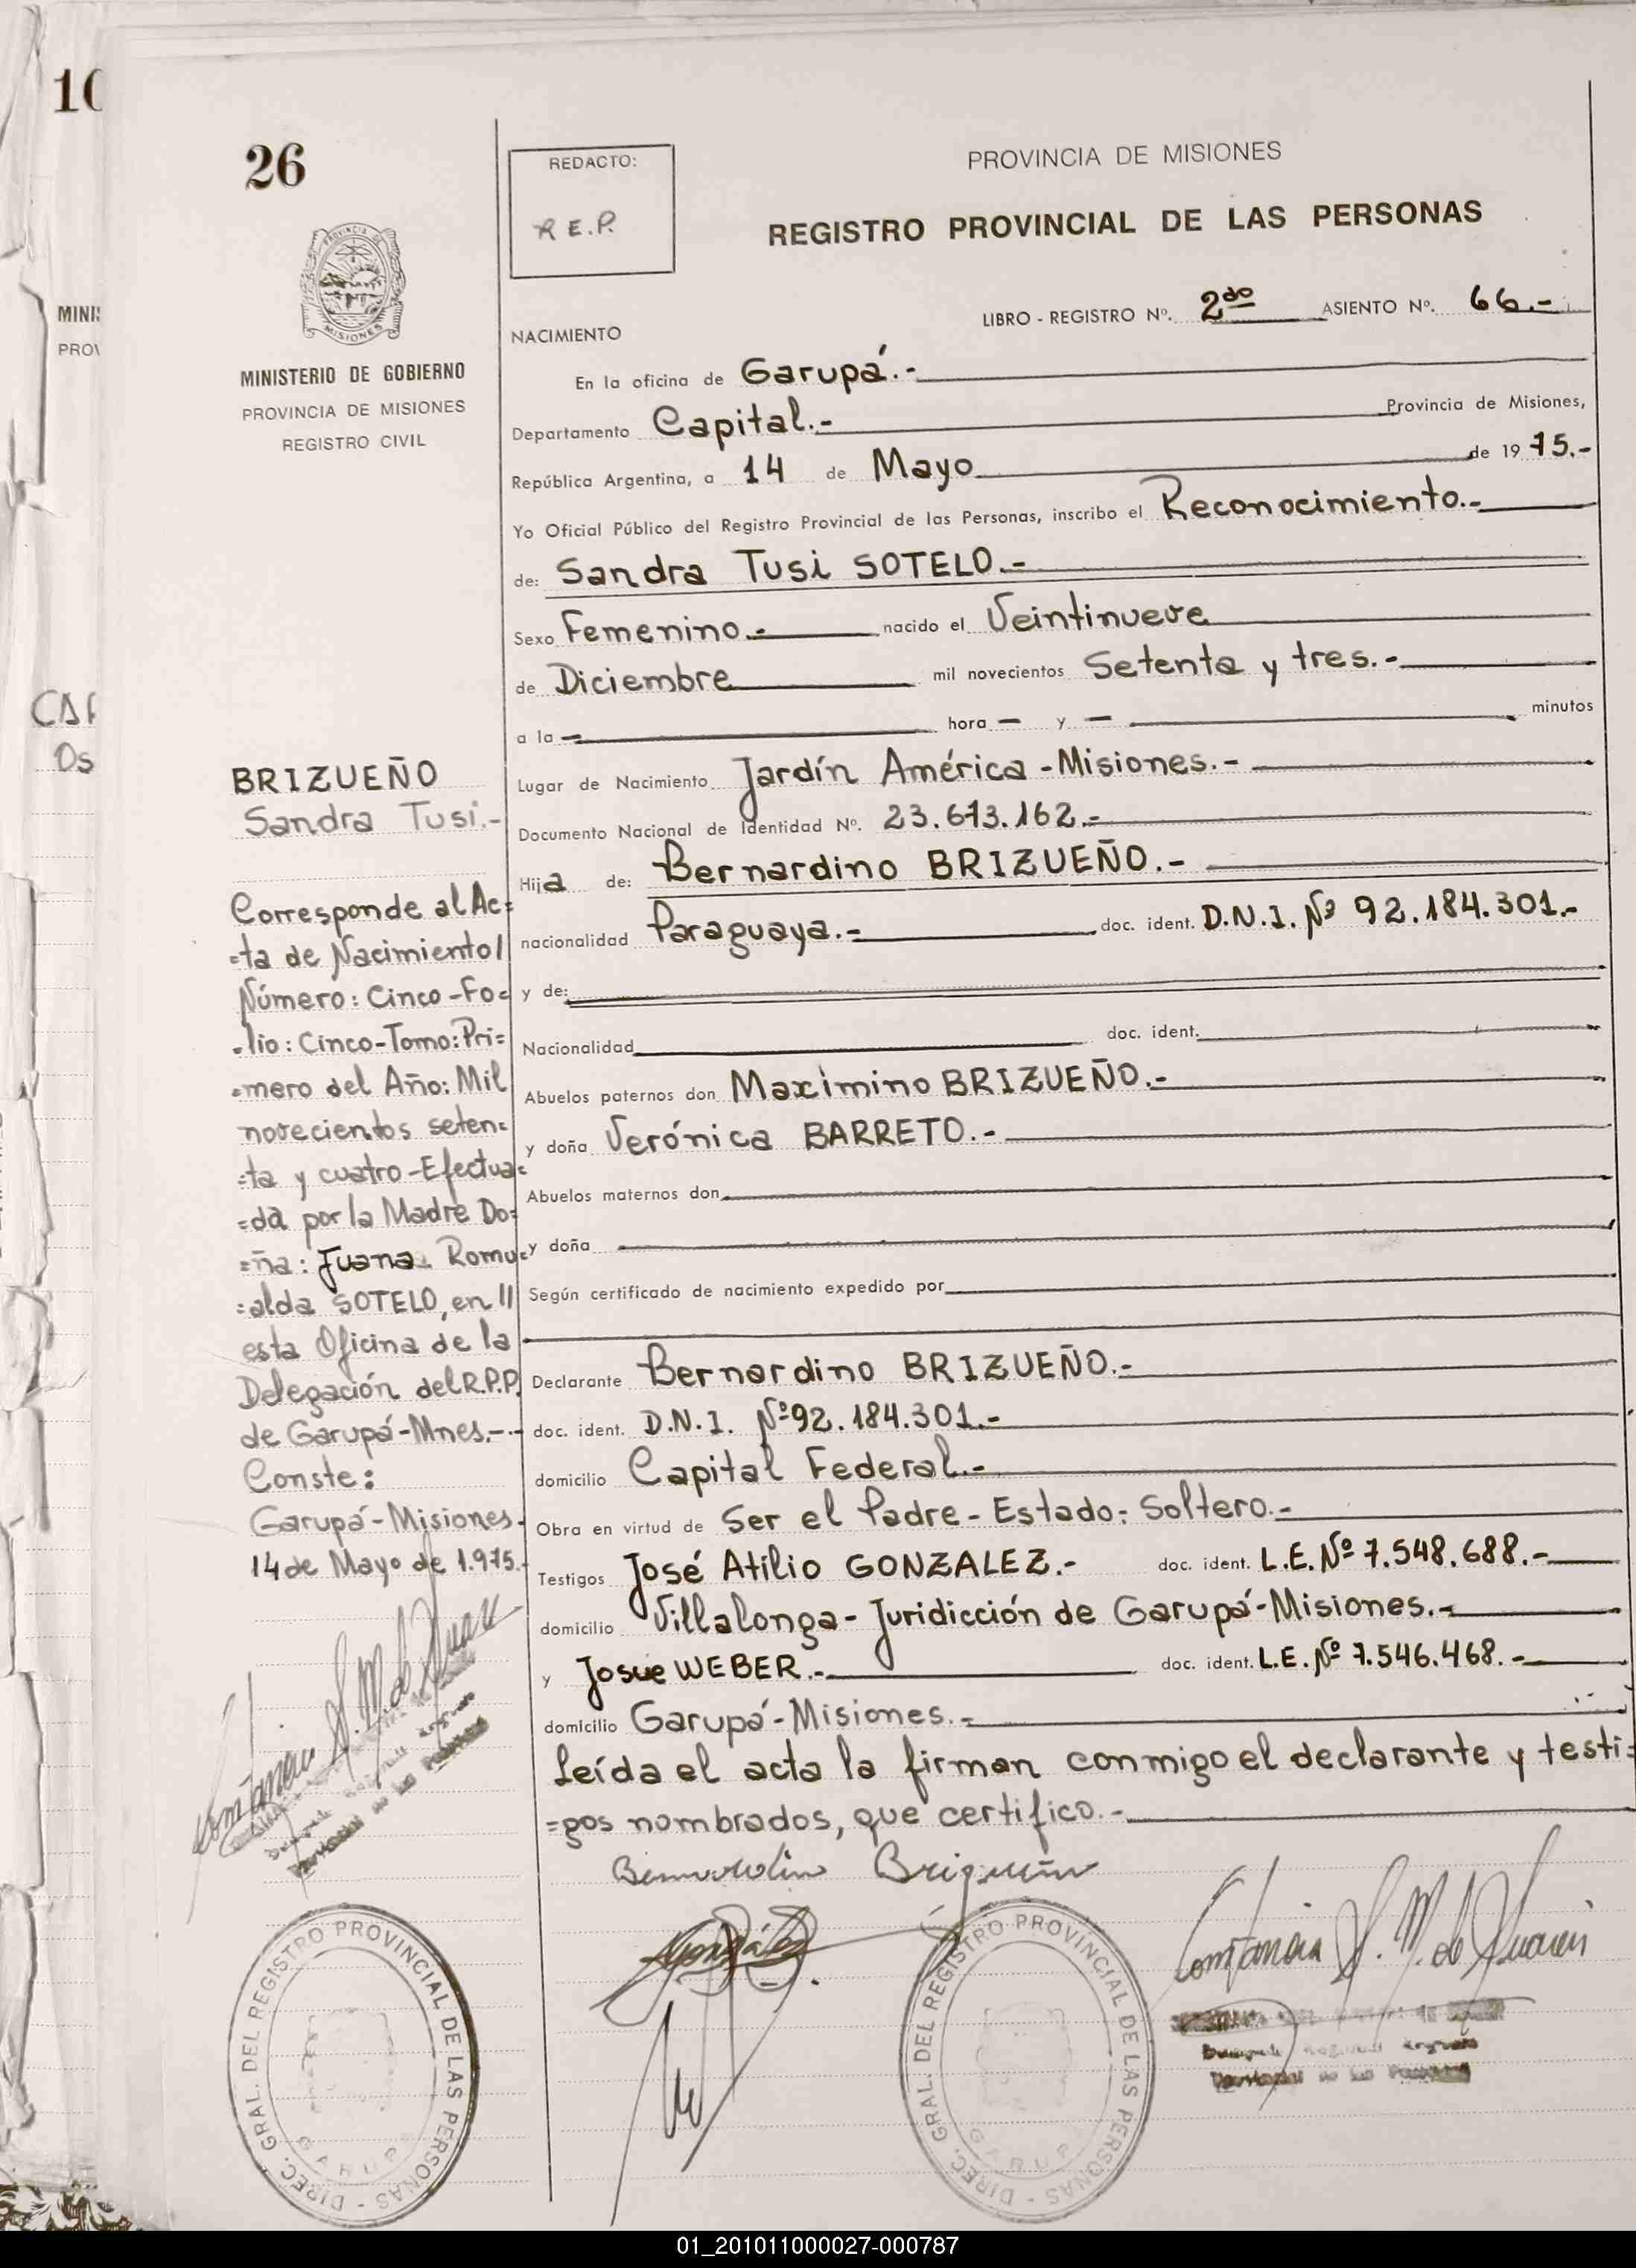 10
26
REDACTO:
R E.P.
PROVINCIA DE MISIONES
REGISTRO PROVINCIAL DE LAS PERSONAS
PROVINCIA DE
MISIONES
MINISTERIO DE GOBIERNO
PROVINCIA DE MISIONES
REGISTRO CIVIL
LIBRO - REGISTRO Nº. 2do ASIENTO Nº. 66.-
NACIMIENTO
En la oficina de Garupá.-
Departamento Capital.- Provincia de Misiones,
República Argentina, a 14 de Mayo de 19 75.-
Yo Oficial Público del Registro Provincial de las Personas, inscribo el Reconocimiento.-
de: Sandra Tusi SOTELO.-
Sexo Femenino.- nacido el Veintinueve
de Diciembre mil novecientos Setenta y tres.-
a la — hora — y — minutos
Lugar de Nacimiento Jardín América - Misiones.-
Documento Nacional de Identidad Nº. 23.673.162.-
Hija de: Bernardino BRIZUEÑO.-
nacionalidad Paraguaya.- doc. ident. D.N.I. Nº 92.184.301.-
y de:
Nacionalidad doc. ident.
Abuelos paternos don Maximino BRIZUEÑO.-
y doña Verónica BARRETO.-
Abuelos maternos don
y doña
Según certificado de nacimiento expedido por
Declarante Bernardino BRIZUEÑO.-
doc. ident. D.N.I. Nº 92.184.301.-
domicilio Capital Federal.-
Obra en virtud de Ser el Padre - Estado: Soltero.-
Testigos José Atilio GONZALEZ.- doc. ident. L.E. Nº 7.548.688.-
domicilio Villalonga - Juridicción de Garupá - Misiones.-
y Josue WEBER.- doc. ident. L.E. Nº 7.546.468.-
domicilio Garupá - Misiones.-
Leída el acta la firman conmigo el declarante y testi=
=gos nombrados, que certifico.-
BRIZUEÑO
Sandra Tusi.-
Corresponde al Ac=
=ta de Nacimiento/
Número: Cinco - Fo=
=lio: Cinco - Tomo: Pri=
=mero del Año: Mil
novecientos seten=
=ta y cuatro - Efectua=
=da por la Madre Do=
=ña: Juana Romu=
=alda SOTELO, en //
esta Oficina de la
Delegación del R.P.P.
de Garupá - Mnes.-
Conste:
Garupá - Misiones.
14 de Mayo de 1.975.-
Bernardino Brizueño
Constancia S. M. de Suarez
DIREC. GRAL. DEL REGISTRO PROVINCIAL DE LAS PERSONAS
GARUPA
DIREC. GRAL. DEL REGISTRO PROVINCIAL DE LAS PERSONAS
GARUPA
01_201011000027-000787